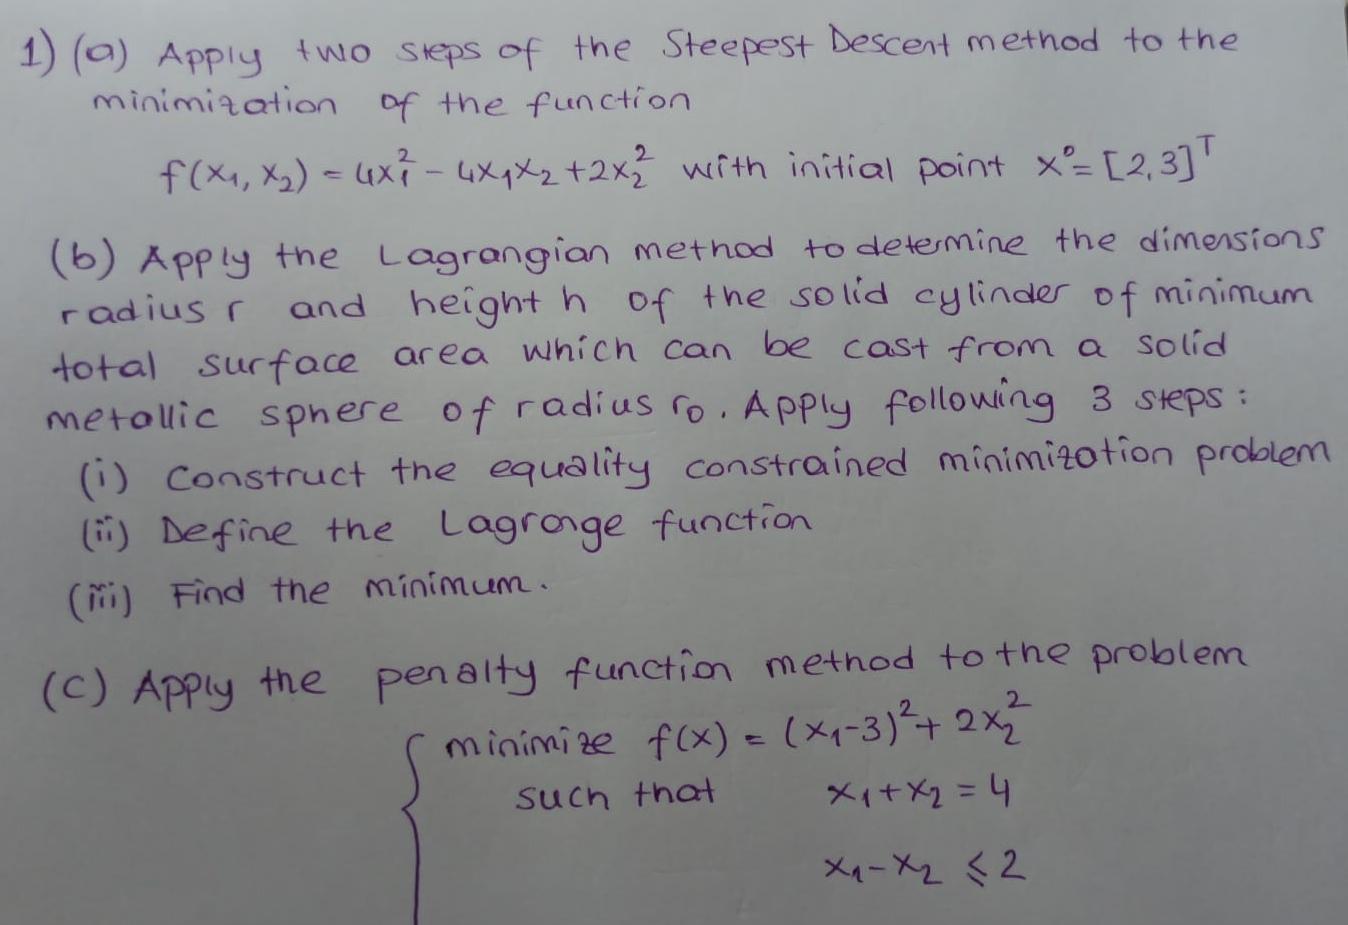 1) (a) Apply two steps of the Steepest Descent method to the
minimization of the function
f(x₁, x₂) = 4x₁² - 4x₁x₂ + 2x₂² with initial point x⁰ = [2,3]ᵀ
(b) Apply the Lagrangian method to determine the dimensions
radius r and height h of the solid cylinder of minimum
total surface area which can be cast from a solid
metallic sphere of radius r₀. Apply following 3 steps:
(i) Construct the equality constrained minimization problem
(ii) Define the Lagrange function
(iii) Find the minimum.
(c) Apply the penalty function method to the problem
minimize f(x) = (x₁-3)² + 2x₂²
such that x₁+x₂ = 4
x₁-x₂ ⩽ 2